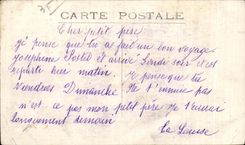 CARTE POSTALE
Cher petit père
je pense que tu as fait un bon voyage
Josephine est arrivé Lundi soir et est
reparti hier matin. Je pense que tu
viendras Dimanche. Ne t'ennuie pas
n'est-ce pas mon petit père je t'écrirai
longuement demain
La